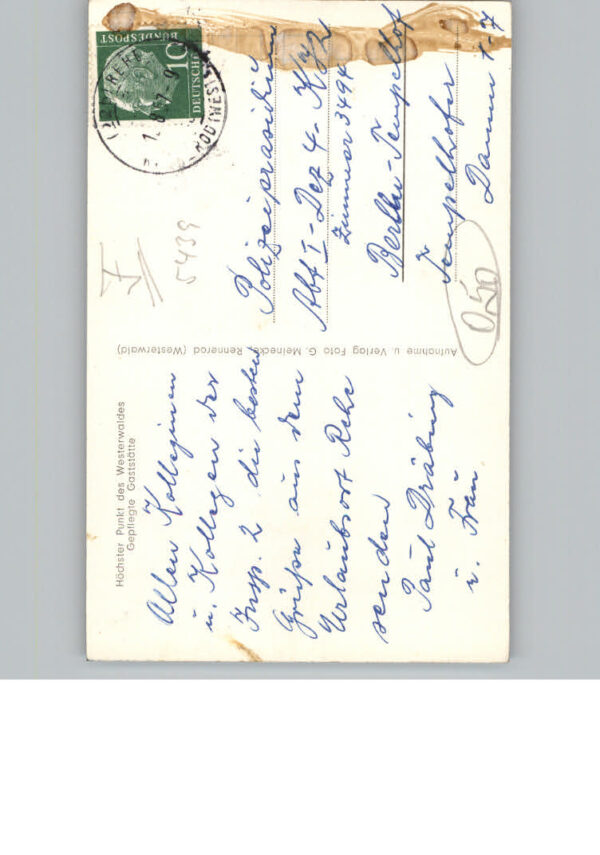 Höchster Punkt des Westerwaldes
Gepflegte Gaststätte
Allen Kolleginen
u. Kollegen der
Insp. 2 die besten
Grüße aus dem
Urlaubsort Rehe
senden
Paul Dräbing
u. Frau
Aufnahme u. Verlag Foto G. Meinecke, Rennerod (Westerwald)
DEUTSCHE
BUNDESPOST
10
REHE
(WEST
I
5439
Polizeipräsidium
Abt I - Dez 4 - Kfz
Zimmer 3494
Berlin-Tempelhof
Tempelhofer
Damm 1-7
0,50